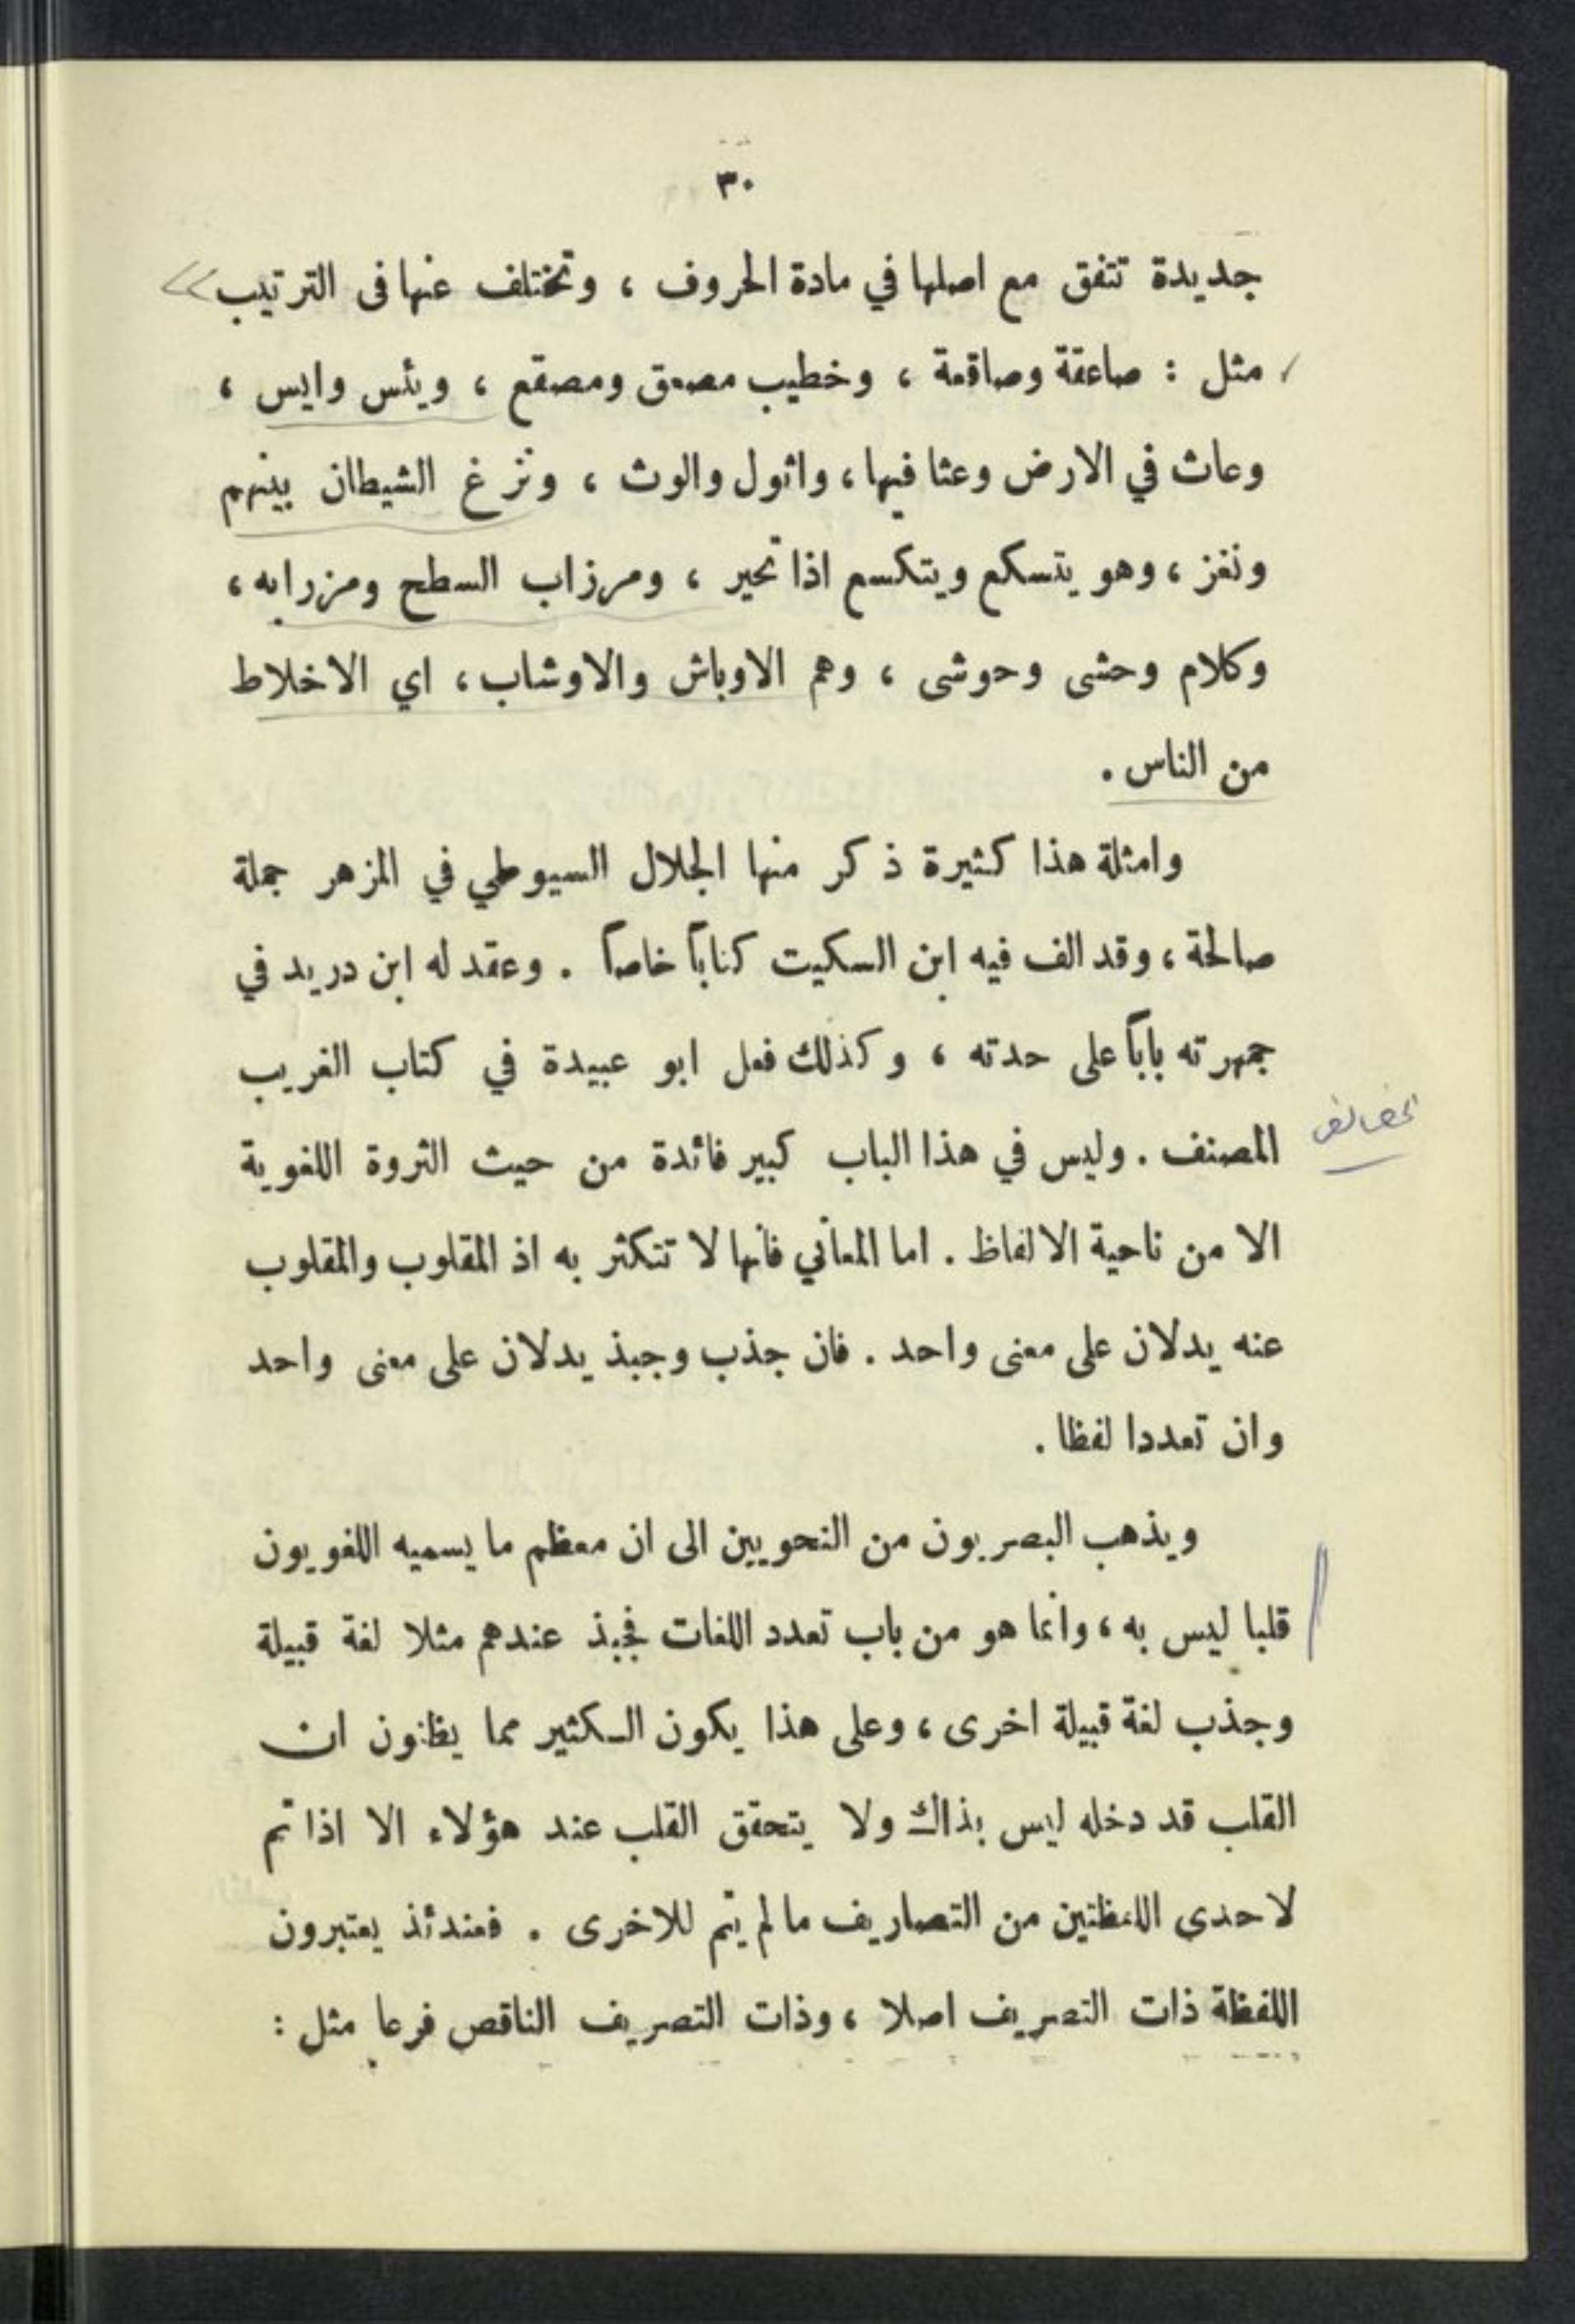 ٣٠
جديدة تتفق مع اصلها في مادة الحروف ، وتختلف عنها فى الترتيب
مثل : صاعقة وصاقعة ، وخطيب مصعق ومصقع ، ويئس وايس ،
وعاث في الارض وعثا فيها ، واثول والوث ، ونزغ الشيطان بينهم
ونغز ، وهو يتسكع ويتكسع اذا تحير ، ومرزاب السطح ومزرابه ،
وكلام وحشى وحوشى ، وهم الاوباش والاوشاب ، اي الاخلاط
من الناس .
وامثلة هذا كثيرة ذكر منها الجلال السيوطي في المزهر جملة
صالحة ، وقد الف فيه ابن السكيت كتاباً خاصاً . وعقد له ابن دريد في
جمهرته باباً على حدته ، وكذلك فعل ابو عبيدة في كتاب الغريب
المصنف . وليس في هذا الباب كبير فائدة من حيث الثروة اللغوية
الا من ناحية الالفاظ . اما المعاني فانها لا تتكثر به اذ المقلوب والمقلوب
عنه يدلان على معنى واحد . فان جذب وجبذ يدلان على معنى واحد
وان تعددا لفظا .
ويذهب البصريون من النحويين الى ان معظم ما يسميه اللغويون
قلبا ليس به ، وانما هو من باب تعدد اللغات فجبذ عندهم مثلا لغة قبيلة
وجذب لغة قبيلة اخرى ، وعلى هذا يكون الكثير مما يظنون ان
القلب قد دخله ليس بذاك ولا يتحقق القلب عند هؤلاء الا اذا تم
لاحدى اللفظتين من التصاريف ما لم يتم للاخرى . فعندئذ يعتبرون
اللفظة ذات التصريف اصلا ، وذات التصريف الناقص فرعا مثل :